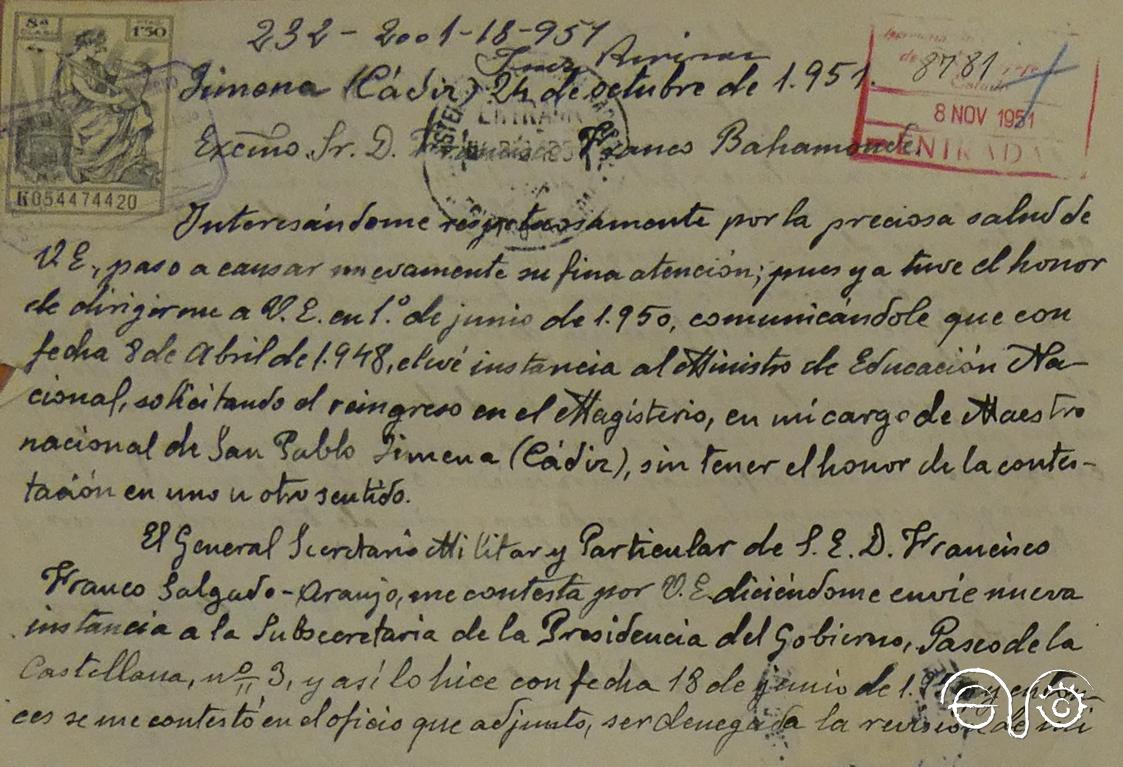 8ª CLASE
PTAS. 1'50
K054474420
232-2001-18-951
Jimena (Cádiz) 24 de octubre de 1.951.
8781
8 NOV 1951
ENTRADA
ENTRADA
Excmo. Sr. D. Francisco Franco Bahamonde.
Interesándome respetuosamente por la preciosa salud de
V.E., paso a causar nuevamente su fina atención; pues ya tuve el honor
de dirigirme a V.E. en 1.º de junio de 1.950, comunicándole que con
fecha 8 de Abril de 1.948, elevé instancia al Ministro de Educación Na-
cional, solicitando el reingreso en el Magisterio, en mi cargo de Maestro
nacional de San Pablo Jimena (Cádiz), sin tener el honor de la contes-
tación en uno u otro sentido.
El General Secretario Militar y Particular de S.E.D. Francisco
Franco Salgado-Araujo, me contesta por V.E. diciéndome envíe nueva
instancia a la Subsecretaria de la Presidencia del Gobierno, Paseo de la
Castellana, nº 3, y así lo hice con fecha 18 de junio de 1. y enton-
ces se me contestó en el oficio que adjunto, ser denegada la revisión de mi